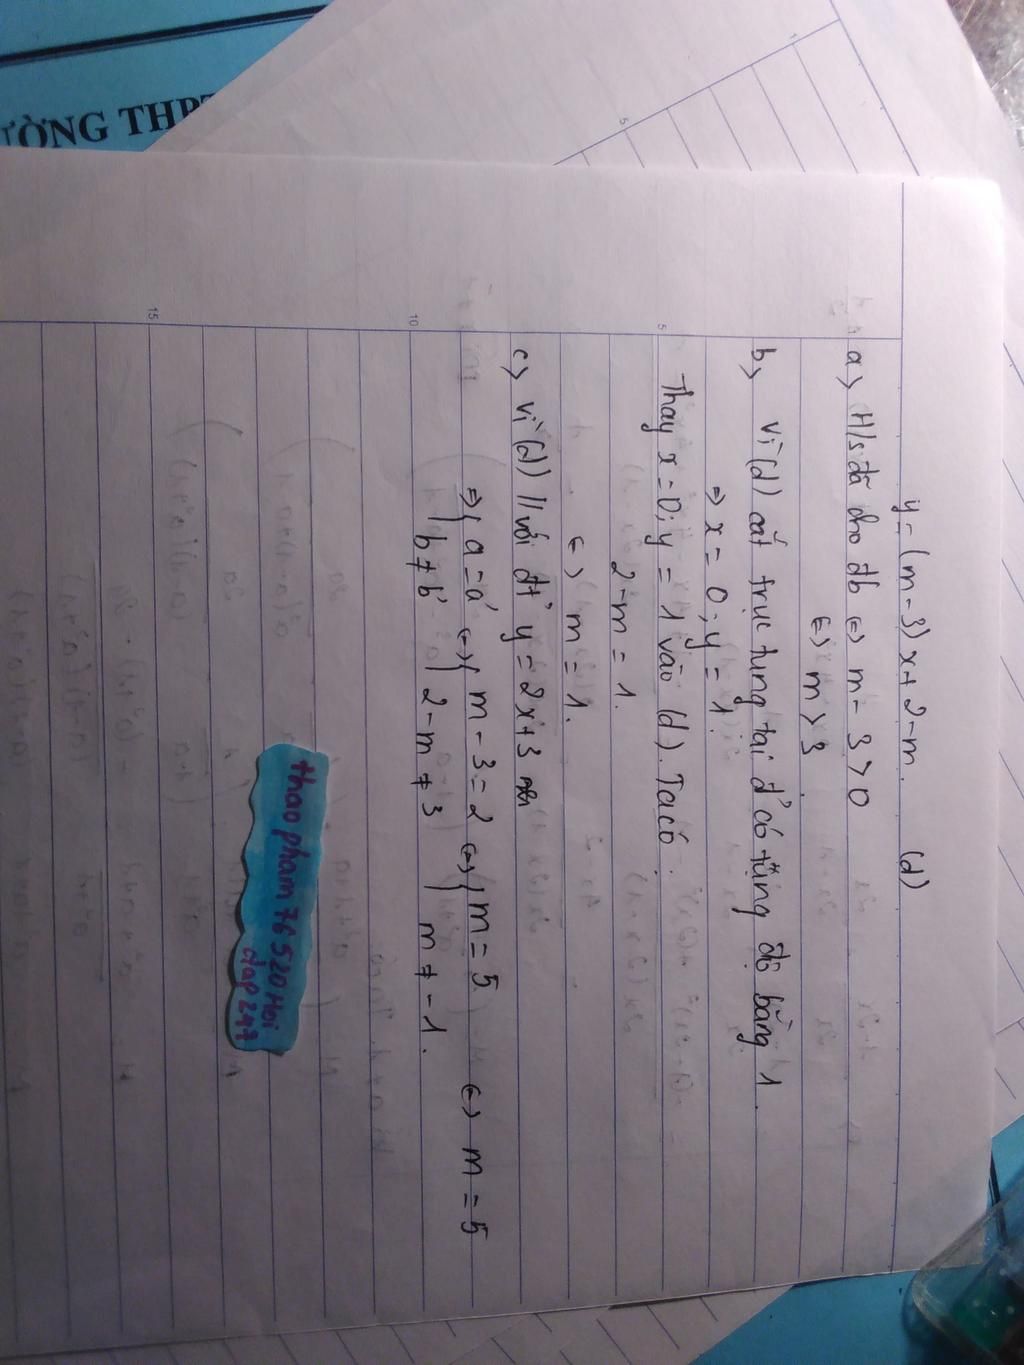 ƯỜNG THPT
y = (m - 3)x + 2 - m. (d)
a) H/s đã cho đb <=> m - 3 > 0
<=> m > 3
b) Vì (d) cắt trục tung tại đ' có tung độ bằng 1.
=> x = 0; y = 1.
Thay x = 0; y = 1 vào (d). Ta có
2 - m = 1.
<=> m = 1.
c) Vì (d) // với đt' y = 2x + 3 nên
=> { a = a' <=> { m - 3 = 2 <=> { m = 5 <=> m = 5
b ≠ b' 2 - m ≠ 3 m ≠ -1.
thao pham 76520 Hoi
dap 247
5
10
15